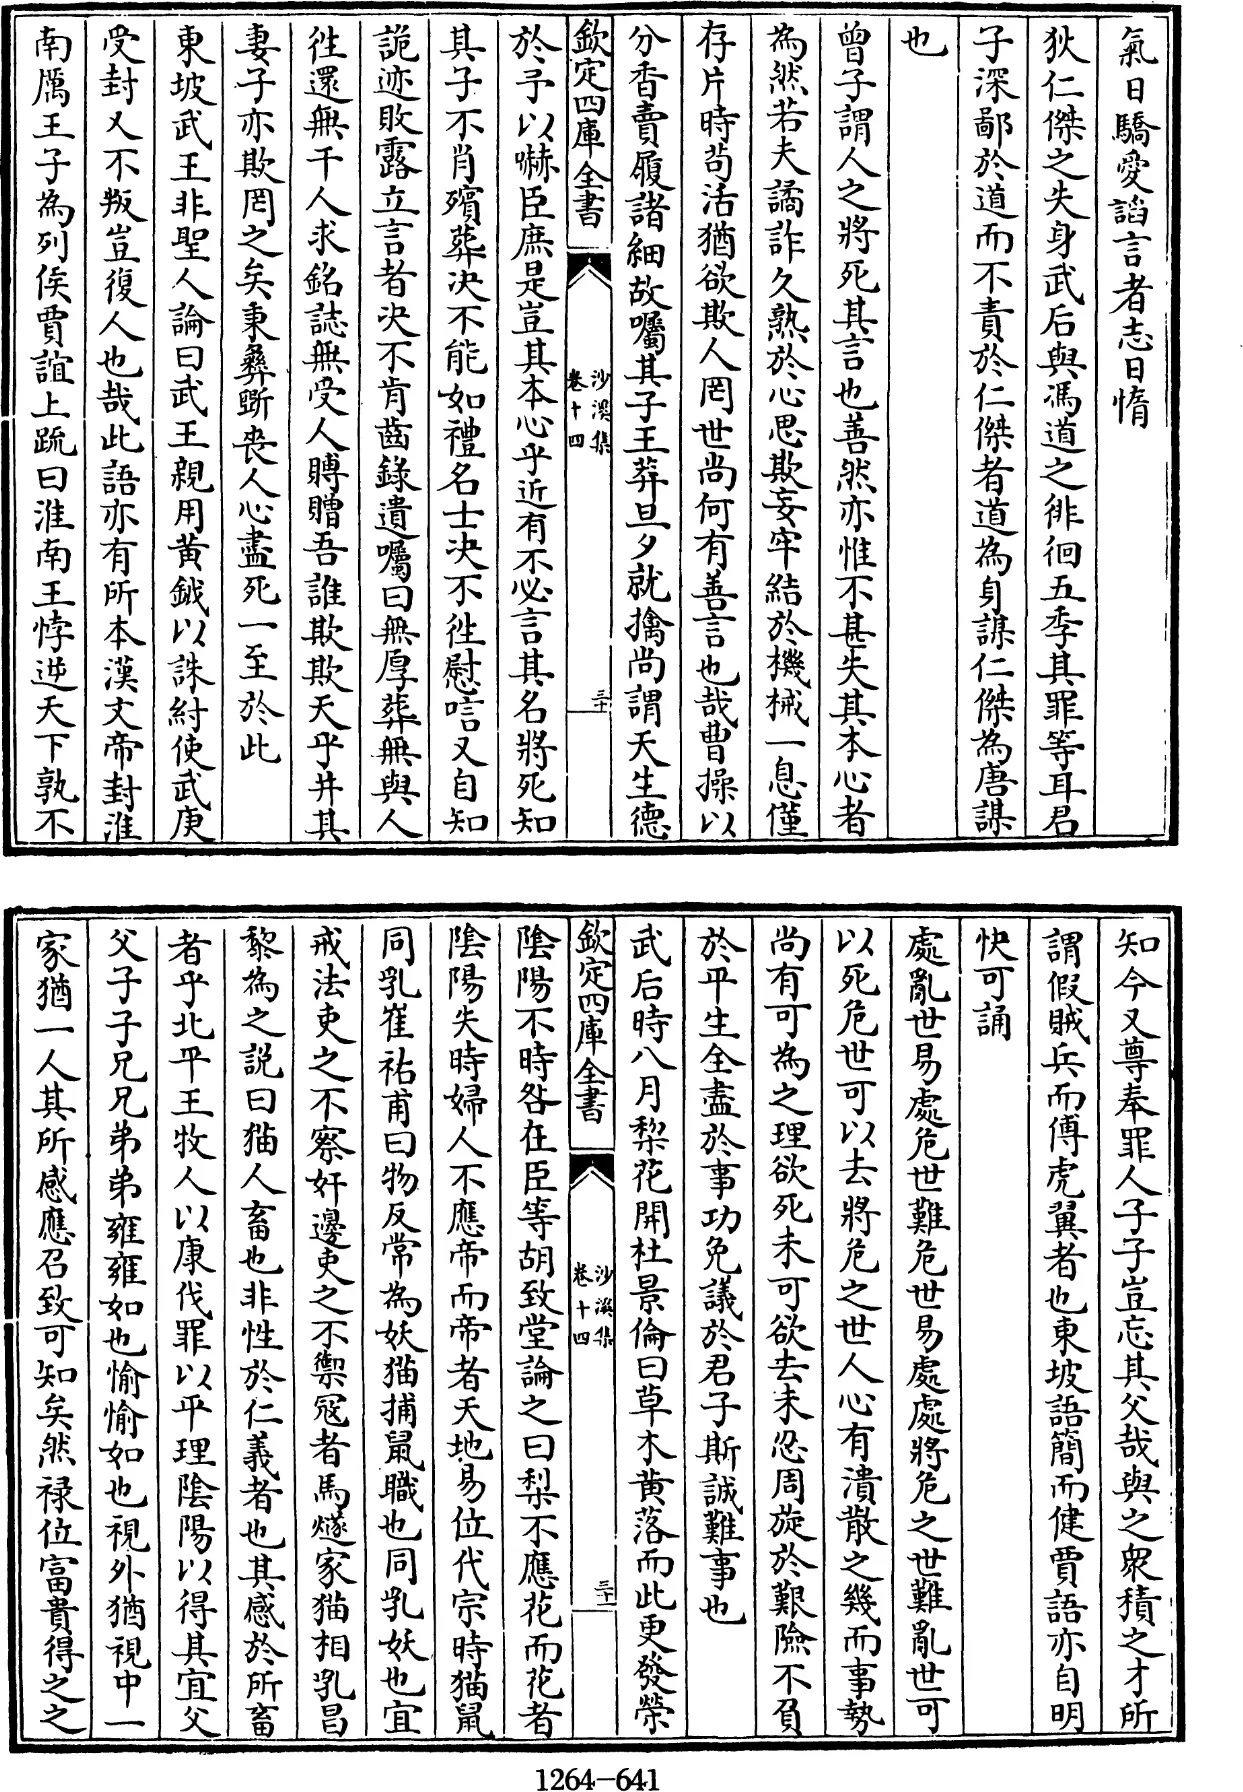 氣日驕愛諂言者志日惰
狄仁傑之失身武后與馮道之徘徊五季其罪等耳君
子深鄙於道而不責於仁傑者道為身謀仁傑為唐謀
也
曾子謂人之將死其言也善然亦惟不甚失其本心者
為然若夫譎詐久熟於心思欺妄牢結於機械一息僅
存片時苟活猶欲欺人罔世尚何有善言也哉曹操以
分香賣履諸細故囑其子王莽旦夕就擒尚謂天生德
欽定四庫全書
沙溪集
卷十四
三十
於予以嚇臣庶是豈其本心乎近有不必言其名將死知
其子不肖殯葬决不能如禮名士决不徃慰唁又自知
詭迹敗露立言者决不肯齒錄遺囑曰無厚葬無與人
徃還無干人求銘誌無受人賻贈吾誰欺欺天乎并其
妻子亦欺罔之矣秉彞斵喪人心盡死一至於此
東坡武王非聖人論曰武王親用黄鉞以誅紂使武庚
受封又不叛豈復人也哉此語亦有所本漢文帝封淮
南厲王子為列侯賈誼上疏曰淮南王悖逆天下孰不
知今又尊奉罪人子子豈忘其父哉與之衆積之才所
謂假賊兵而傅虎翼者也東坡語簡而健賈語亦自明
快可誦
處亂世易處危世難危世易處處將危之世難亂世可
以死危世可以去將危之世人心有潰散之幾而事勢
尚有可為之理欲死未可欲去未忍周旋於艱險不負
於平生全盡於事功免議於君子斯誠難事也
武后時八月梨花開杜景倫曰草木黄落而此更發榮
欽定四庫全書
沙溪集
卷十四
三十一
陰陽不時咎在臣等胡致堂論之曰梨不應花而花者
陰陽失時婦人不應帝而帝者天地易位代宗時猫鼠
同乳崔祐甫曰物反常為妖猫捕鼠職也同乳妖也宜
戒法吏之不察奸邊吏之不禦寇者馬燧家猫相乳昌
黎為之説曰猫人畜也非性於仁義者也其感於所畜
者乎北平王牧人以康伐罪以平理陰陽以得其宜父
父子子兄兄弟弟雍雍如也愉愉如也視外猶視中一
家猶一人其所感應召致可知矣然禄位富貴得之之
1264-641